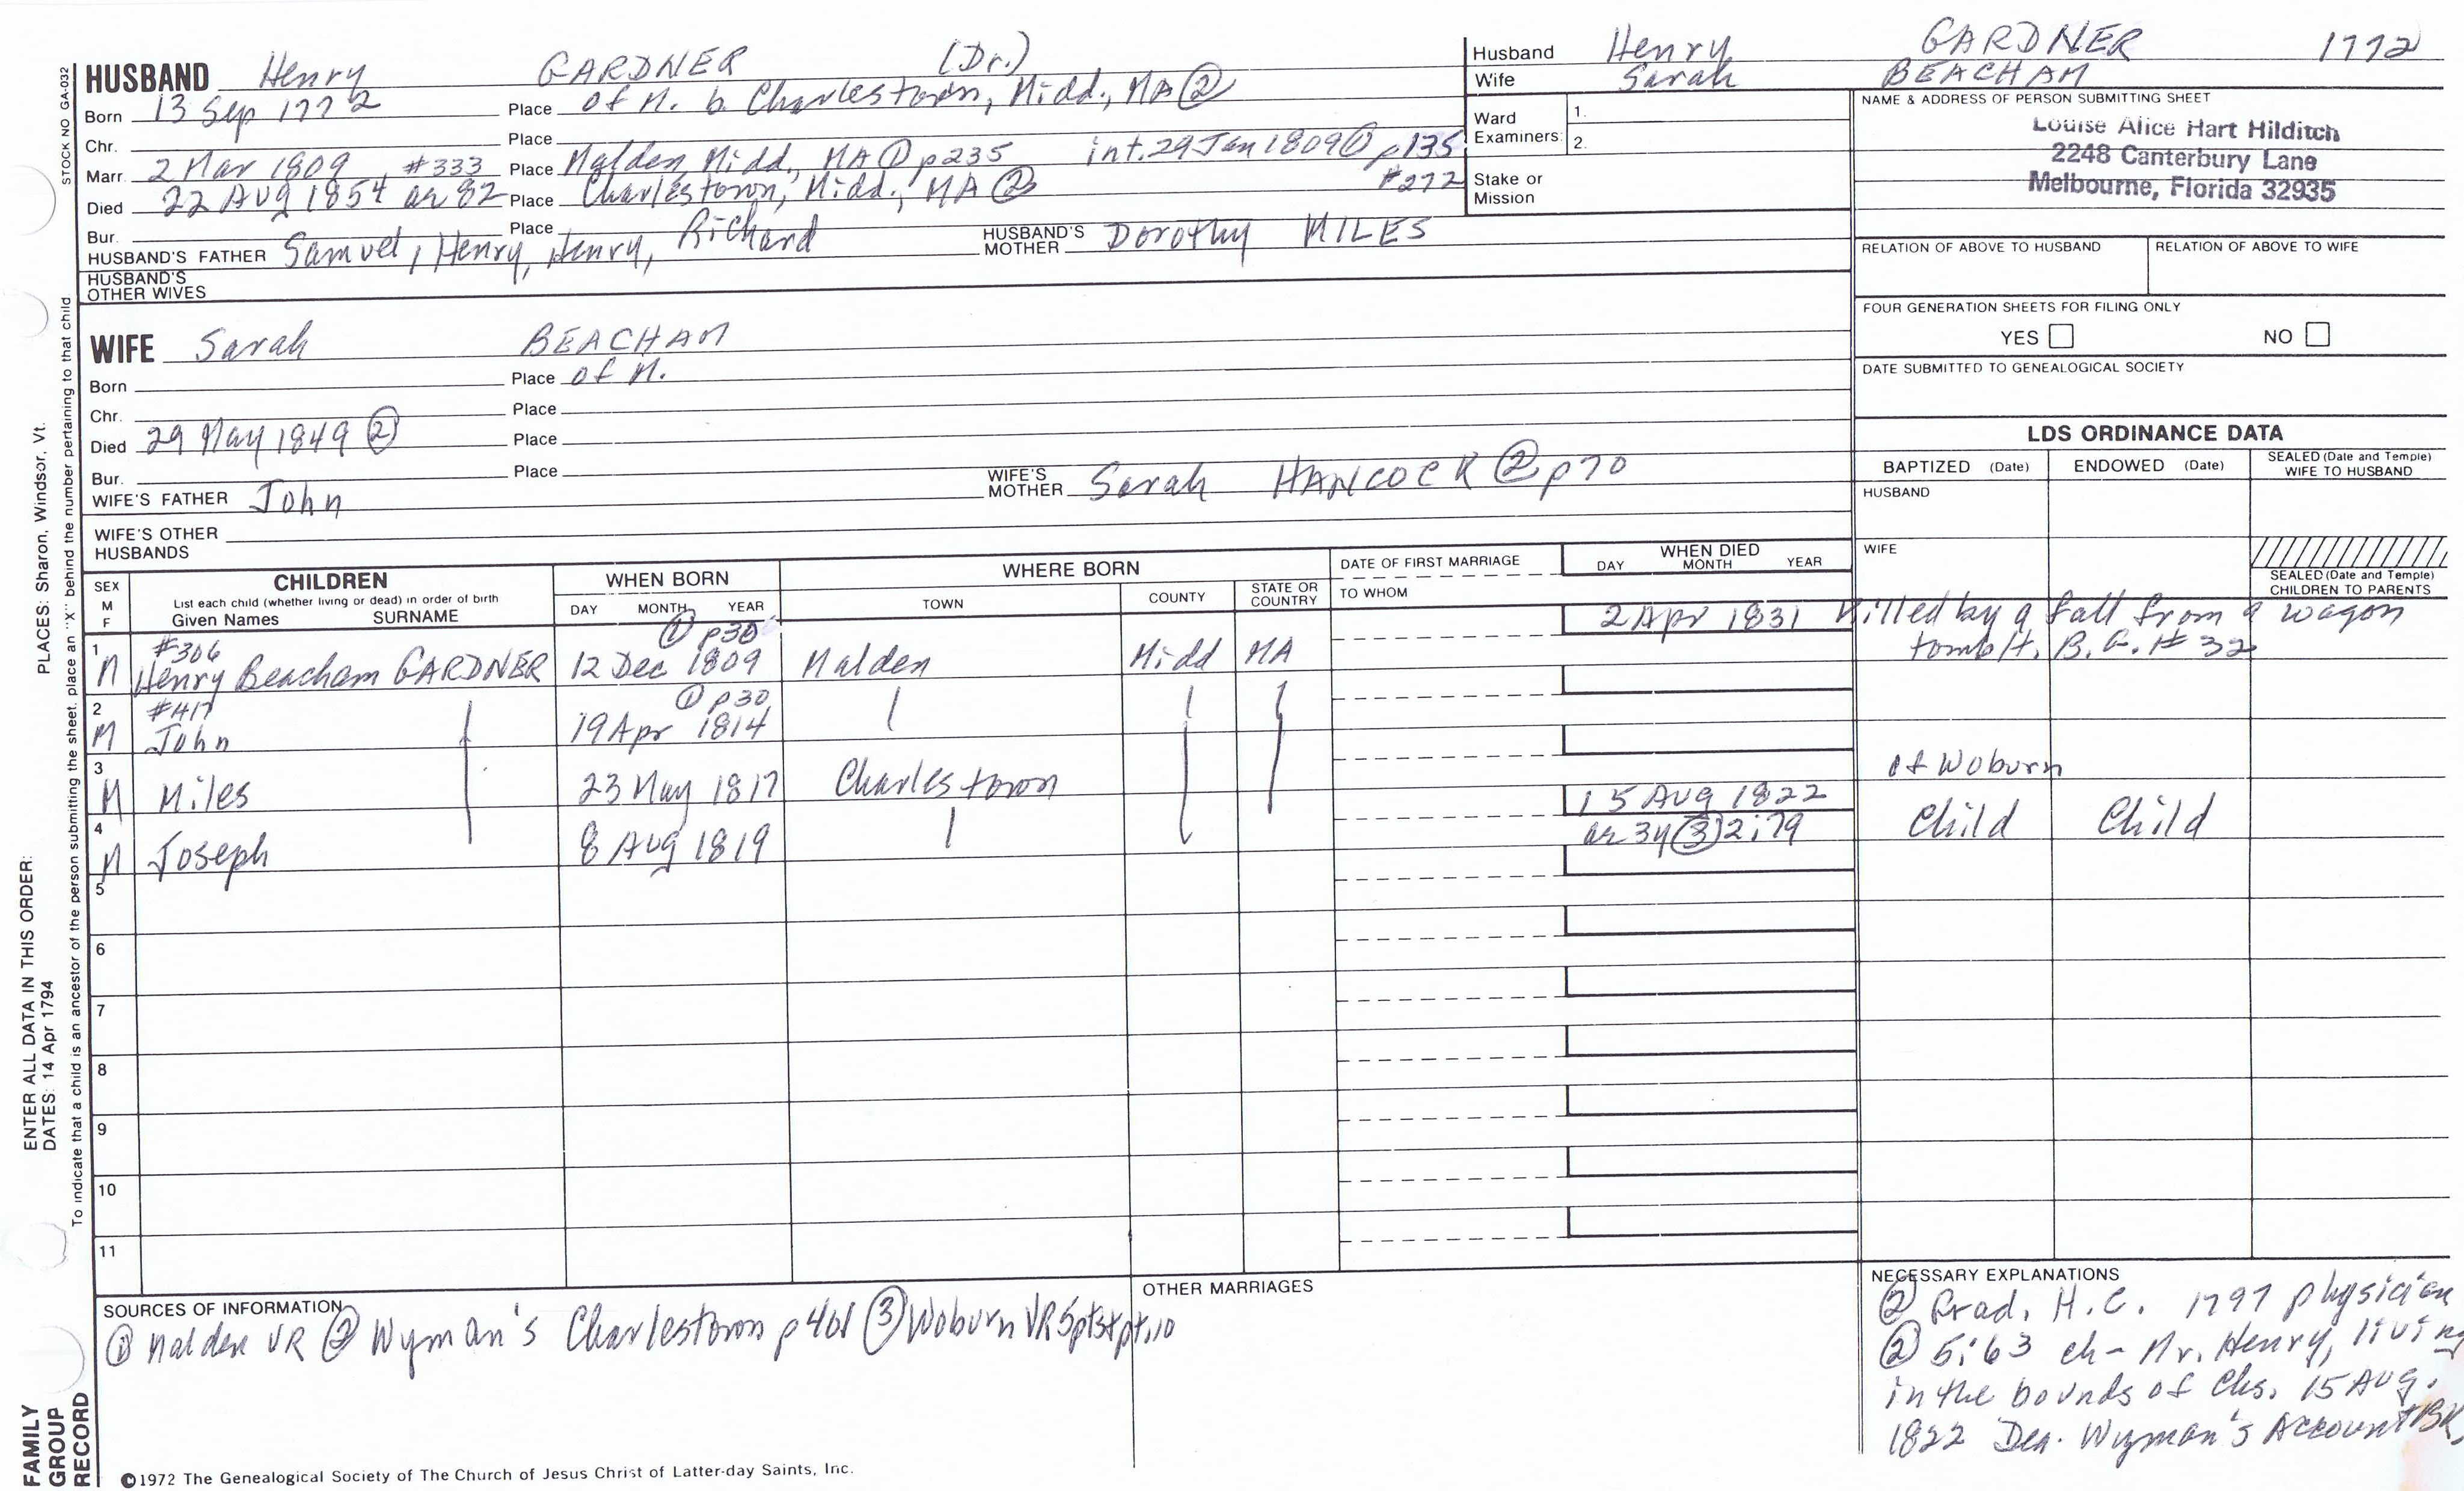 HUSBAND Henry GARDNER (Dr.)
Born 13 Sep 1772 Place of M. b Charlestown, Midd., MA ②
Chr. Place
Marr. 2 Mar 1809 #333 Place Malden, Midd., MA ① p235 int. 29 Jan 1809 ① p135 #272
Died 22 AUG 1854 ae 82 Place Charlestown, Midd., MA ②
Bur. Place
HUSBAND'S FATHER Samuel, Henry, Henry, Richard HUSBAND'S MOTHER Dorothy MILES
HUSBAND'S OTHER WIVES
Husband Henry GARDNER 1772
Wife Sarah BEACHAM
Ward Examiners: 1.
2.
Stake or Mission
NAME & ADDRESS OF PERSON SUBMITTING SHEET
Louise Alice Hart Hilditch
2248 Canterbury Lane
Melbourne, Florida 32935
RELATION OF ABOVE TO HUSBAND RELATION OF ABOVE TO WIFE
FOUR GENERATION SHEETS FOR FILING ONLY
YES NO
DATE SUBMITTED TO GENEALOGICAL SOCIETY
WIFE Sarah BEACHAM
Born Place of M.
Chr. Place
Died 29 May 1849 ② Place
Bur. Place
WIFE'S FATHER John WIFE'S MOTHER Sarah HANCOCK ② p70
WIFE'S OTHER HUSBANDS
LDS ORDINANCE DATA
BAPTIZED (Date) ENDOWED (Date) SEALED (Date and Temple) WIFE TO HUSBAND
HUSBAND
WIFE
SEALED (Date and Temple) CHILDREN TO PARENTS
SEX M F
CHILDREN
List each child (whether living or dead) in order of birth
Given Names SURNAME
WHEN BORN
DAY MONTH YEAR
WHERE BORN
TOWN COUNTY STATE OR COUNTRY
DATE OF FIRST MARRIAGE
TO WHOM
WHEN DIED
DAY MONTH YEAR
① p30
1 #306 2 Apr 1831 Killed by a fall from a wagon
M Henry Beacham GARDNER 12 Dec 1809 Malden Midd MA tomb H. B. G. # 32
2 #417 ① p30
M John 19 Apr 1814
3 of Woburn
M Miles 23 May 1817 Charlestown 15 AUG 1822
4 ae 3y ③ 2:79 Child Child
M Joseph 8 AUG 1819
5
6
7
8
9
10
11
SOURCES OF INFORMATION
① Malden VR ② Wyman's Charlestown p401 ③ Woburn VR
OTHER MARRIAGES
NECESSARY EXPLANATIONS
② Grad. H.C. 1797 physician
② 5:63 ch- Mr. Henry, living
in the bounds of Chs. 15 AUG.
1822 Dea. Wyman's Account BK.
STOCK NO GA-032
PLACES: Sharon, Windsor, Vt.
To indicate that a child is an ancestor of the person submitting the sheet, place an "X" behind the number pertaining to that child
ENTER ALL DATA IN THIS ORDER:
DATES: 14 Apr 1794
FAMILY
GROUP
RECORD
©1972 The Genealogical Society of The Church of Jesus Christ of Latter-day Saints, Inc.